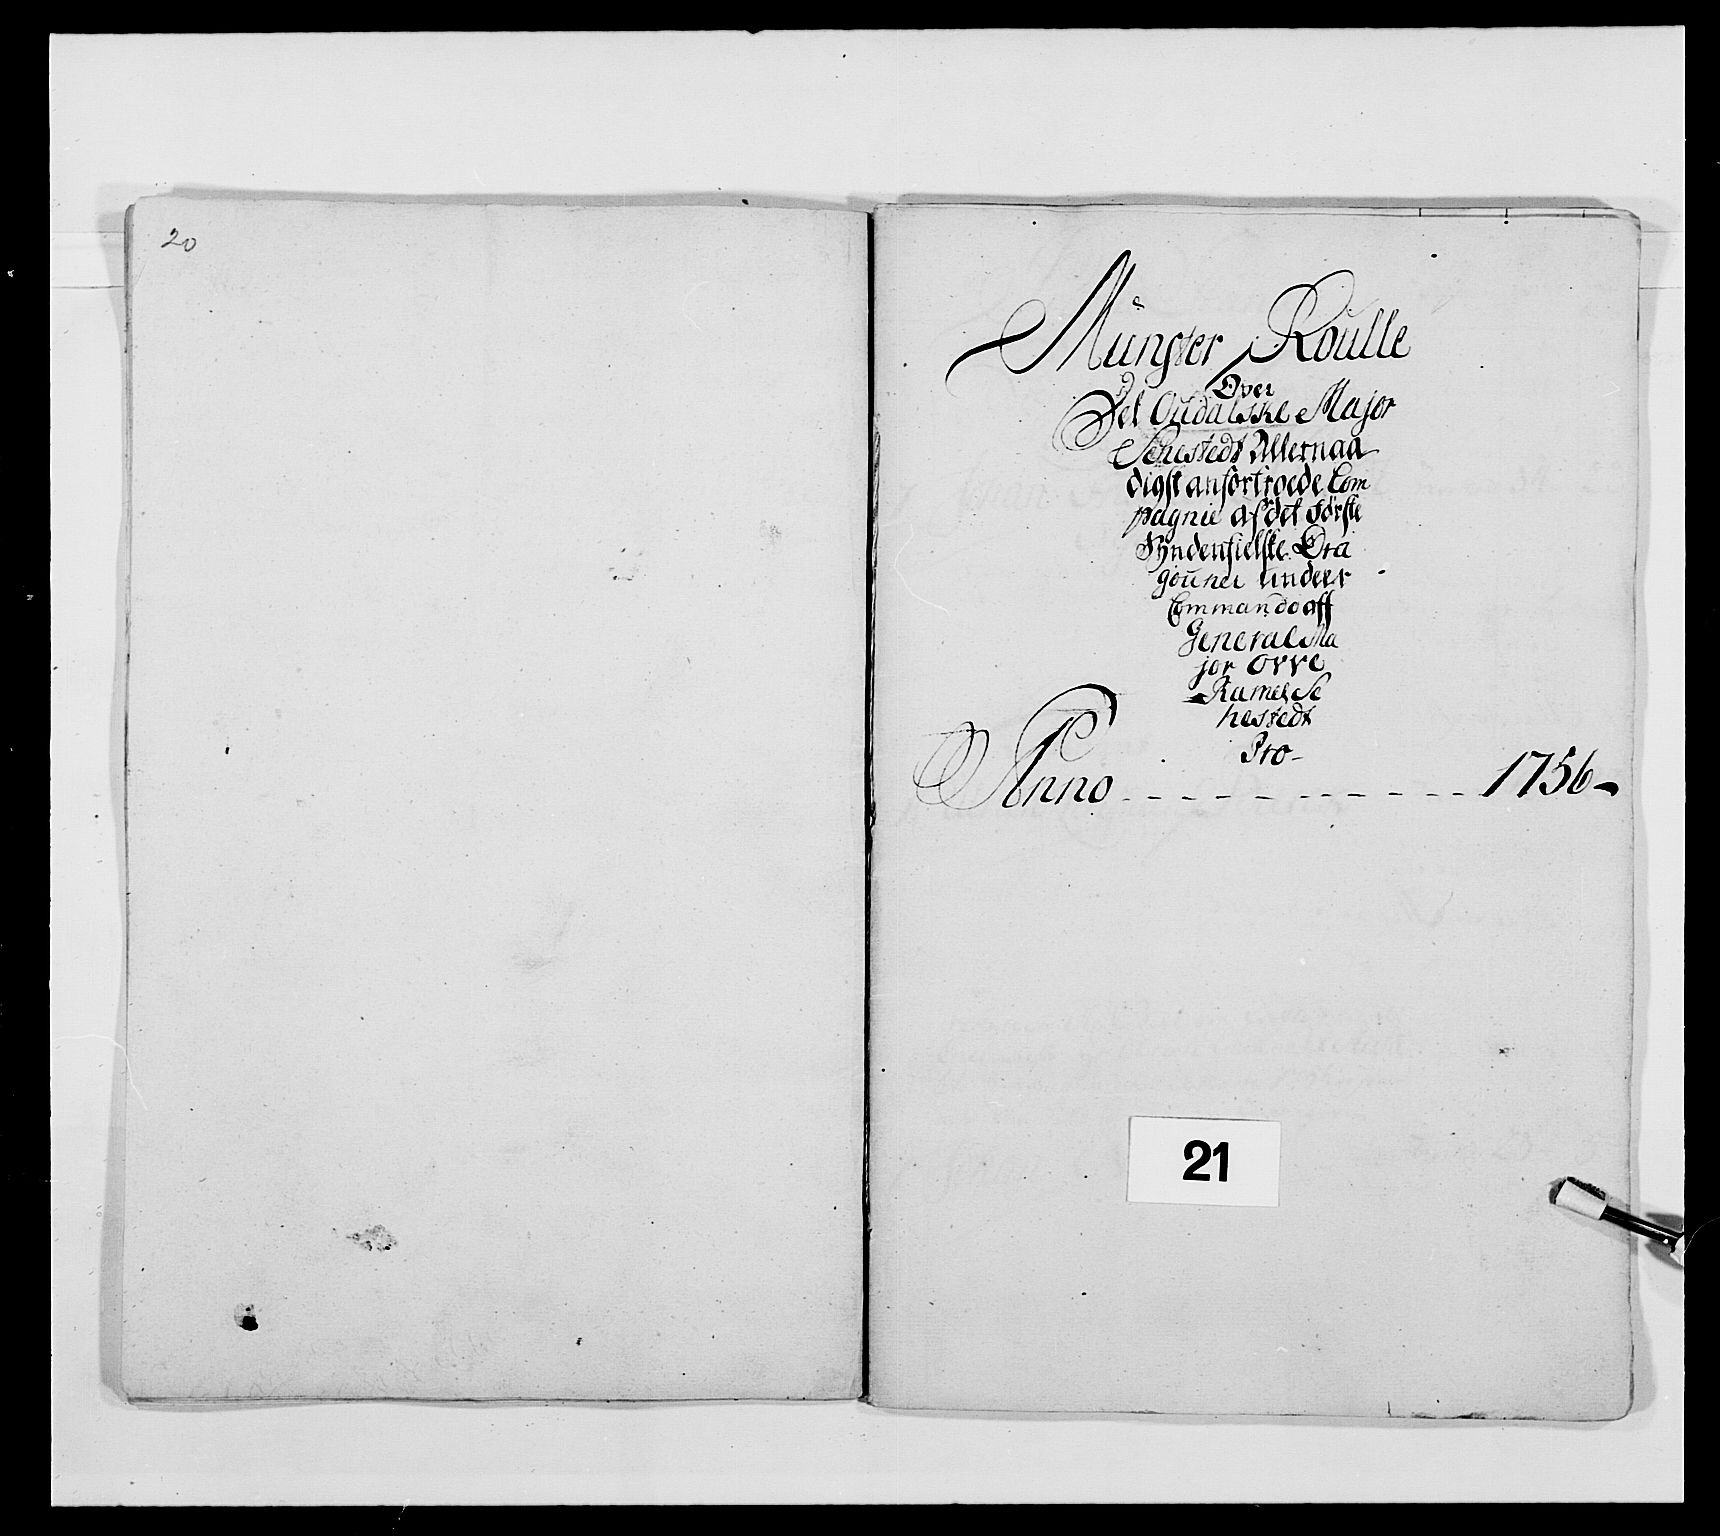 20
Münster Roulle
Over
Det Oudalske Major
Sehestedt Allernaa
digst anfortroede Com
pagnie af det første
Syndenfielske Dra
gouner under
Commando aff
General Ma
jor Ovve
Ramel Se
hestedt
Pro-
Anno - - - - - - - - - - 1756-
21